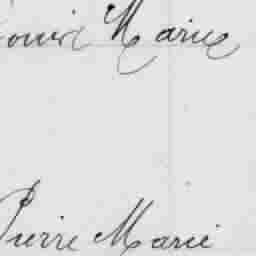 Louis Marie
Pierre Marie